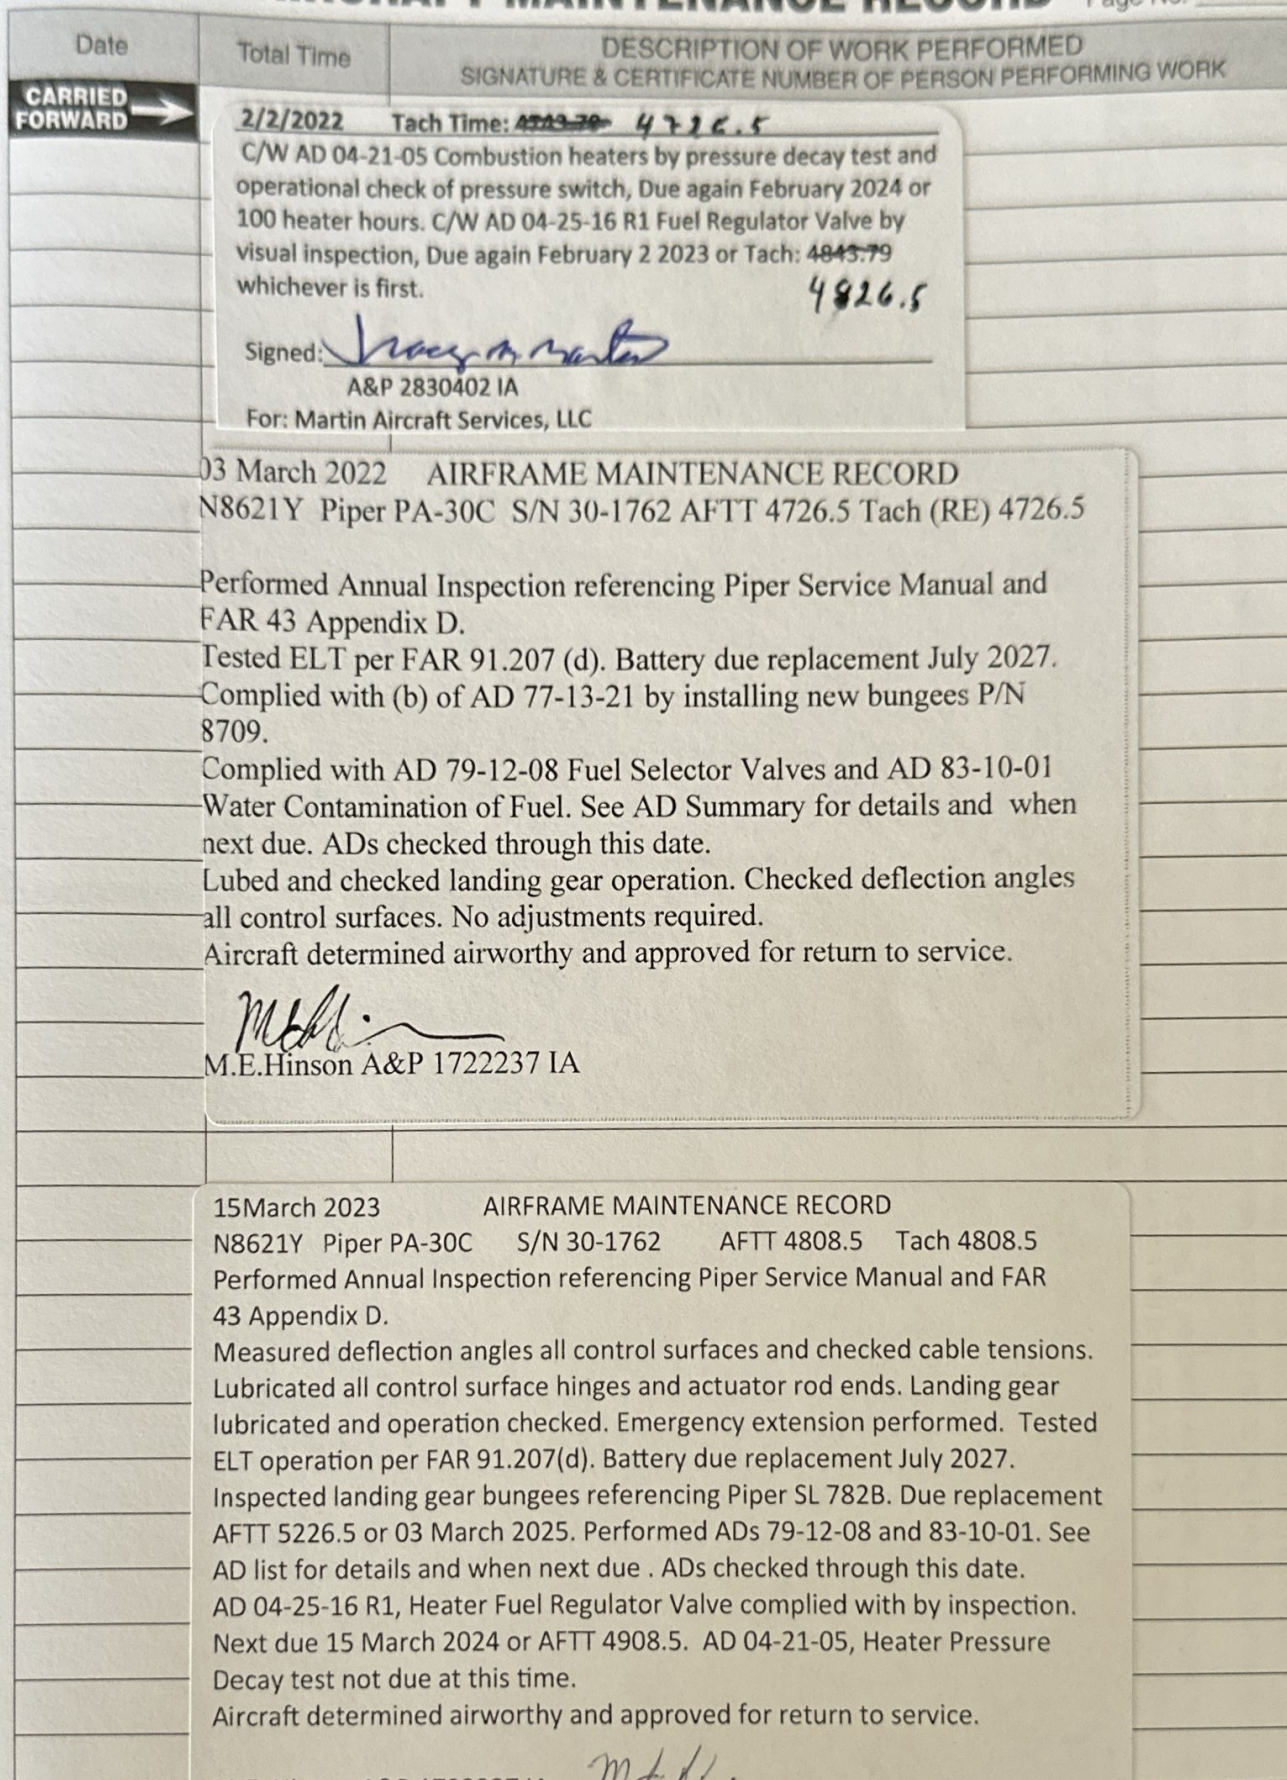 Date
Total Time
DESCRIPTION OF WORK PERFORMED
SIGNATURE & CERTIFICATE NUMBER OF PERSON PERFORMING WORK
CARRIED
FORWARD
2/2/2022 Tach Time: 4726.5
C/W AD 04-21-05 Combustion heaters by pressure decay test and
operational check of pressure switch, Due again February 2024 or
100 heater hours. C/W AD 04-25-16 R1 Fuel Regulator Valve by
visual inspection, Due again February 2 2023 or Tach: 4843.79
whichever is first. 4826.5
Signed:
A&P 2830402 IA
For: Martin Aircraft Services, LLC
03 March 2022 AIRFRAME MAINTENANCE RECORD
N8621Y Piper PA-30C S/N 30-1762 AFTT 4726.5 Tach (RE) 4726.5
Performed Annual Inspection referencing Piper Service Manual and
FAR 43 Appendix D.
Tested ELT per FAR 91.207 (d). Battery due replacement July 2027.
Complied with (b) of AD 77-13-21 by installing new bungees P/N
8709.
Complied with AD 79-12-08 Fuel Selector Valves and AD 83-10-01
Water Contamination of Fuel. See AD Summary for details and when
next due. ADs checked through this date.
Lubed and checked landing gear operation. Checked deflection angles
all control surfaces. No adjustments required.
Aircraft determined airworthy and approved for return to service.
M.E.Hinson A&P 1722237 IA
15March 2023 AIRFRAME MAINTENANCE RECORD
N8621Y Piper PA-30C S/N 30-1762 AFTT 4808.5 Tach 4808.5
Performed Annual Inspection referencing Piper Service Manual and FAR
43 Appendix D.
Measured deflection angles all control surfaces and checked cable tensions.
Lubricated all control surface hinges and actuator rod ends. Landing gear
lubricated and operation checked. Emergency extension performed. Tested
ELT operation per FAR 91.207(d). Battery due replacement July 2027.
Inspected landing gear bungees referencing Piper SL 782B. Due replacement
AFTT 5226.5 or 03 March 2025. Performed ADs 79-12-08 and 83-10-01. See
AD list for details and when next due . ADs checked through this date.
AD 04-25-16 R1, Heater Fuel Regulator Valve complied with by inspection.
Next due 15 March 2024 or AFTT 4908.5. AD 04-21-05, Heater Pressure
Decay test not due at this time.
Aircraft determined airworthy and approved for return to service.